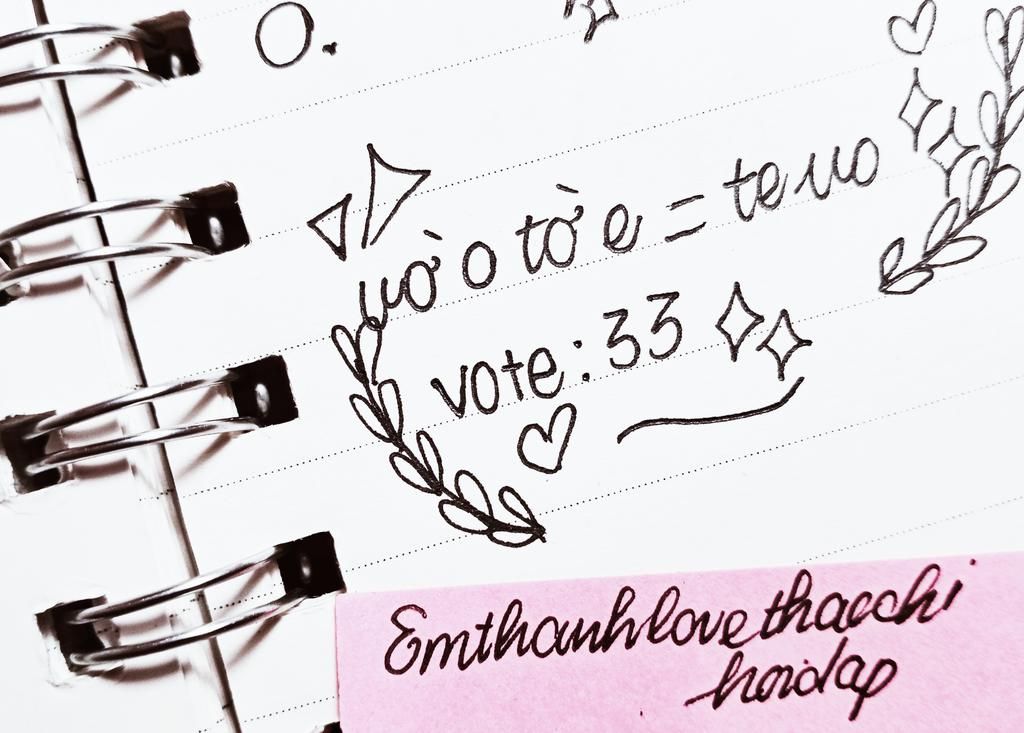 O.
vờ o tờ e = te vo
vote: 33
Emthanhlovethacchi
hoidap